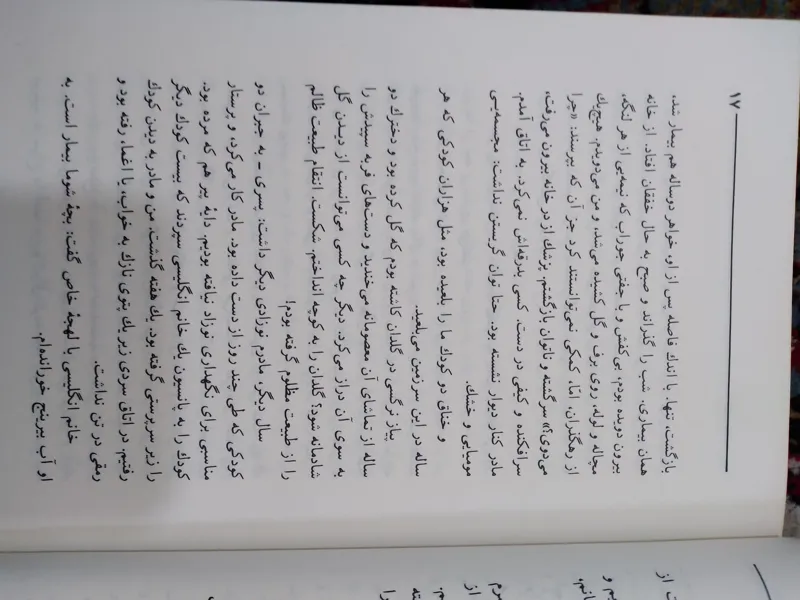 ۱۷
بازگشت، تنها. با اندك فاصله پس از او، خواهر دوساله هم بیمار شد،
همان بیماری. شب را گذراند و صبح به حال خفقان افتاد. از خانه
بیرون دویده بودم، بی‌کفش و با جفتی جوراب که نیمه‌یی از هر لنگه،
مچاله و لوله، روی برف و گل کشیده می‌شد، و من می‌دویدم. هیچ‌یك
از رهگذران، امّا، کمکی نمی‌توانستند کرد جز آن که بپرسند: «چرا
می‌دوی؟» سرگشته و ناتوان بازگشتم. پزشك از در خانه بیرون می‌رفت،
سرافکنده و کیفی در دست. کسی بدرقه‌اش نمی‌کرد. به اتاق آمدم.
مادر کنار دیوار نشسته بود. حتا توان گریستن نداشت: مجسمه‌یی
مومیایی و خشك.
و خناق دو کودك ما را بلعیده بود، مثل هزاران کودکی که هر
ساله در این سرزمین می‌بلعید.
پیاز نرگسی در گلدان کاشته بودم که گل کرده بود و دخترك دو
ساله از تماشای آن معصومانه می‌خندید و دست‌های فربه سپیدش را
به سوی آن دراز می‌کرد. دیگر چه کسی می‌توانست از دیدن گل
شادمانه شود؟ گلدان را به کوچه انداختم. شکست. انتقام طبیعت ظالم
را از طبیعت مظلوم گرفته بودم!
سال دیگر، مادرم نوزادی دیگر داشت: پسری – به جبران دو
کودکی که طی چند روز از دست داده بود. مادر کار می‌کرد، و پرستار
مناسبی برای نگهداری نوزاد نیافته بودیم. دایهٔ پیر هم که مرده بود.
کودك را به پانسیون یك خانم انگلیسی سپردند که بیست کودك دیگر
را زیر سرپرستی گرفته بود. یك هفته گذشت. من و مادر به دیدن کودك
رفتیم. در اتاق سردی زیر یك پتوی نازك به خواب، یا اغما، رفته بود و
رمقی در تن نداشت.
خانم انگلیسی با لهجهٔ خاص گفت: بچهٔ شوما بیمار است. به
او آب بیرینج خورانده‌ام.